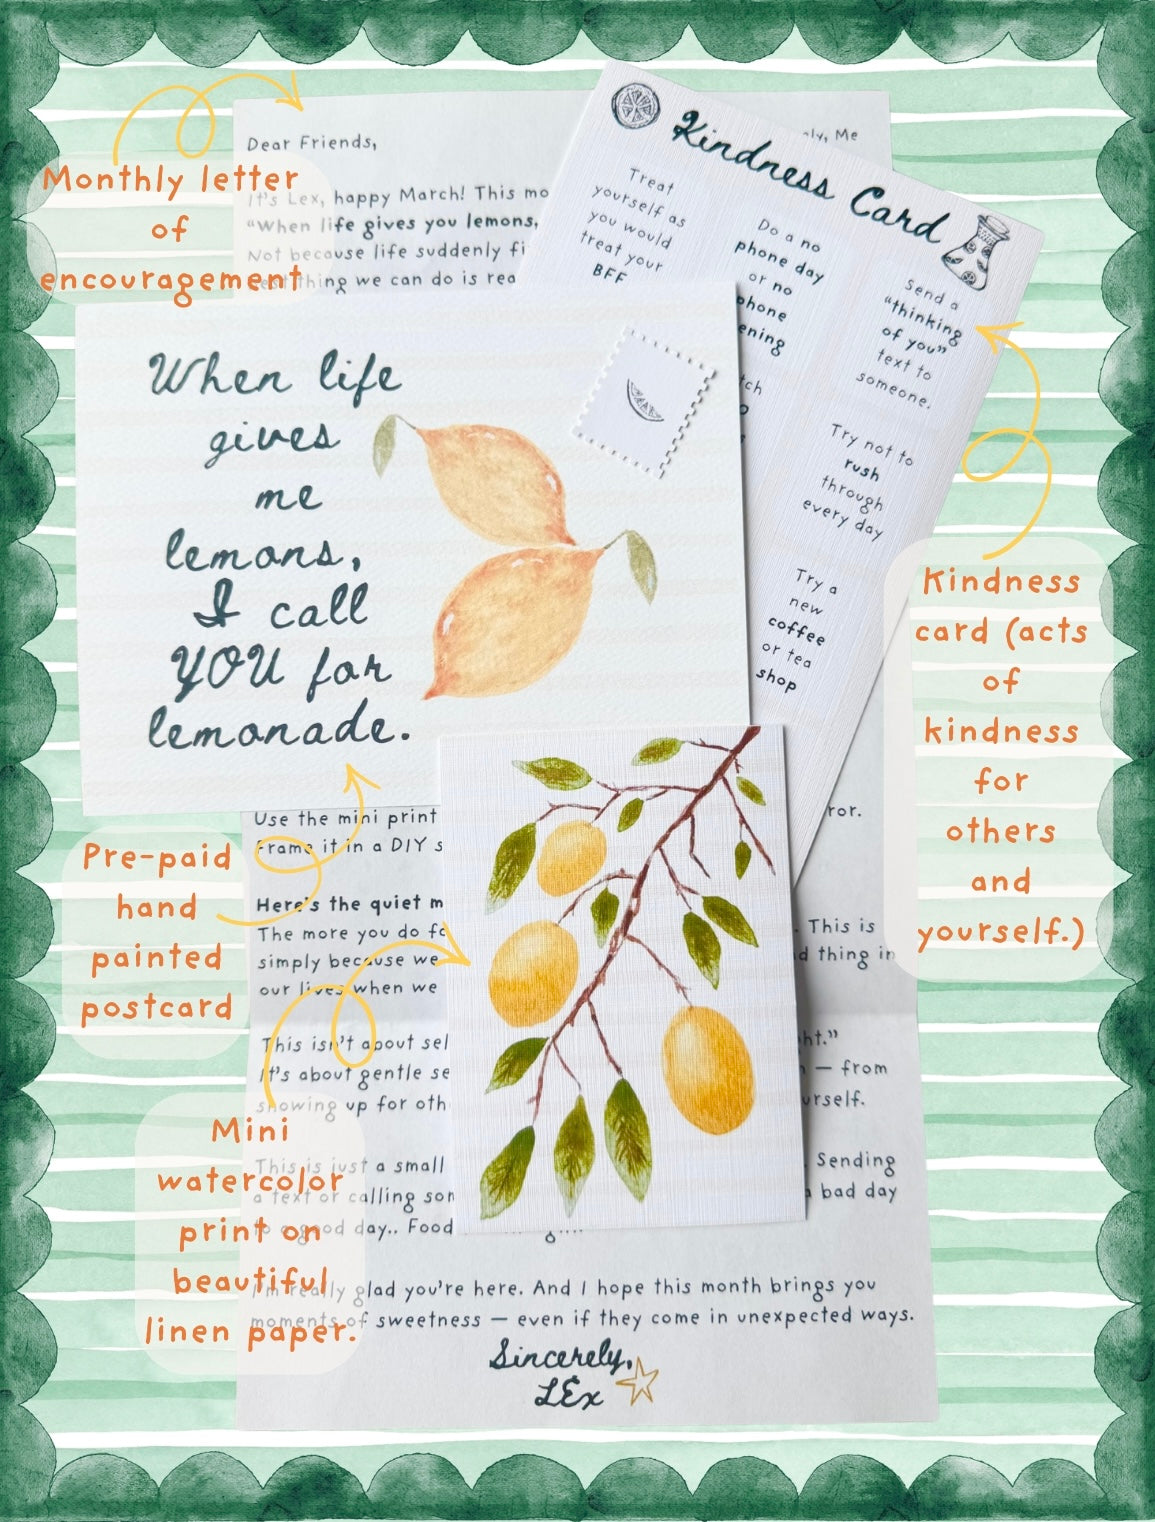 Monthly letter
of
encouragement
Dear Friends,
It's Lex, happy March! This mo
"When life gives you lemons,
Not because life suddenly fi
thing we can do is rea
ly, Me
Kindness Card
Treat
yourself as
you would
treat your
BFF
Do a no
phone day
or no
phone
ening
tch
Send a
"thinking
of you"
text to
someone.
Try not to
rush
through
every day
Try a
new
coffee
or tea
shop
When life
gives
me
lemons,
I call
YOU for
lemonade.
Kindness
card (acts
of
kindness
for
others
and
yourself.)
Pre-paid
hand
painted
postcard
Mini
watercolor
print on
beautiful
linen paper.
Use the mini print
Frame it in a DIY s
ror.
Here's the quiet m
The more you do fo
. This is
simply because we
d thing in
our lives when we
This isn't about sel
ht."
It's about gentle se
— from
showing up for oth
urself.
This is just a small
. Sending
a text or calling son
a bad day
to a good day.. Food
I'm really glad you're here. And I hope this month brings you
moments of sweetness — even if they come in unexpected ways.
Sincerely,
LEx